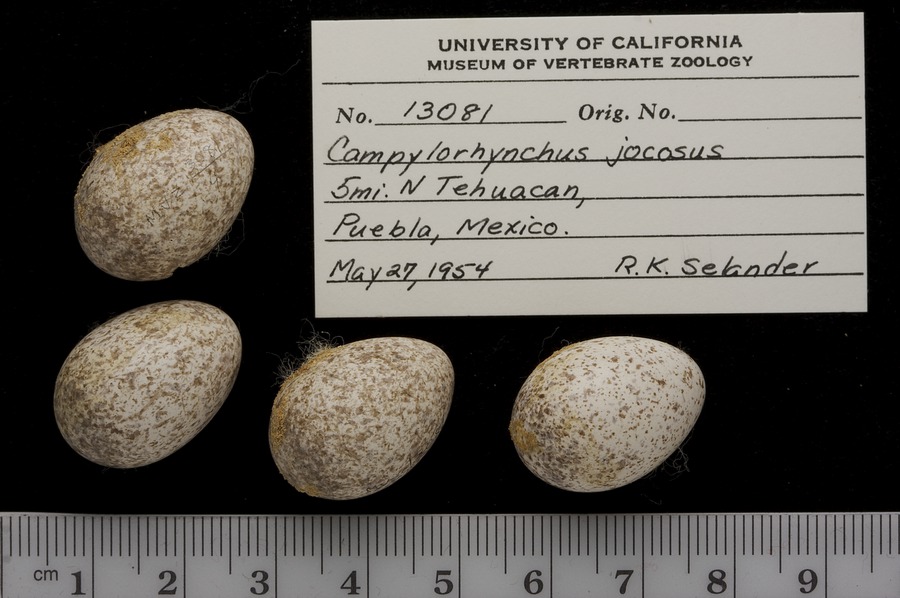 UNIVERSITY OF CALIFORNIA
MUSEUM OF VERTEBRATE ZOOLOGY
No. 13081 Orig. No.
Campylorhynchus jocosus
5mi. N Tehuacan,
Puebla, Mexico.
May 27, 1954 R.K. Selander
cm 1 2 3 4 5 6 7 8 9